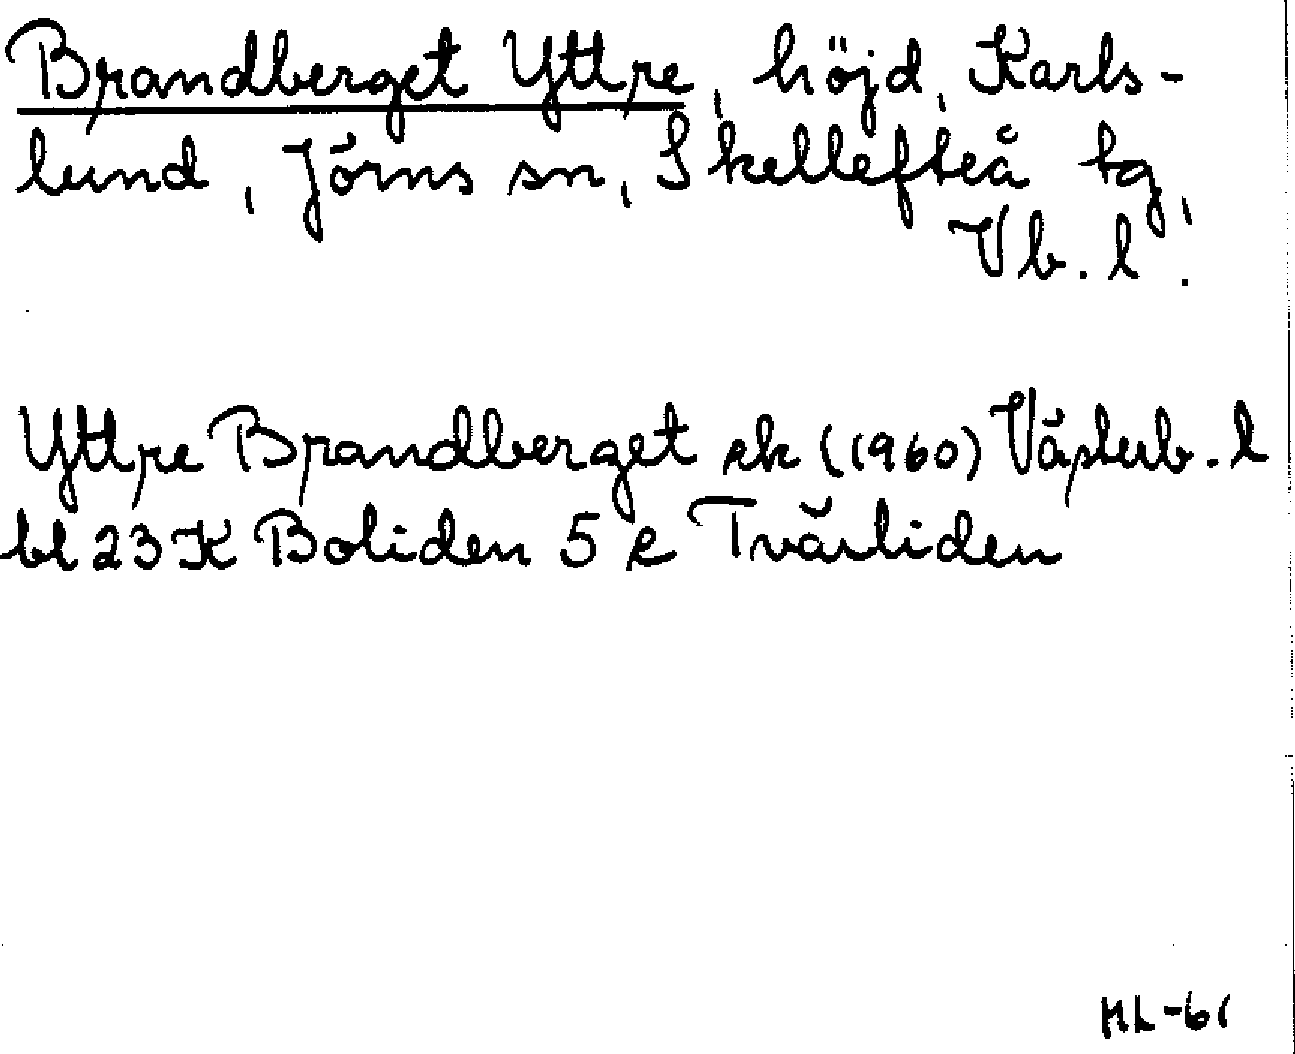 Brandberget Yttre, höjd, Karls-
lund, Jörns sn, Skellefteå tg,
Vb. l.
Yttre Brandberget ek (1960) Västerb. l
bl 23 K Boliden 5 e Tvärliden
ML-61